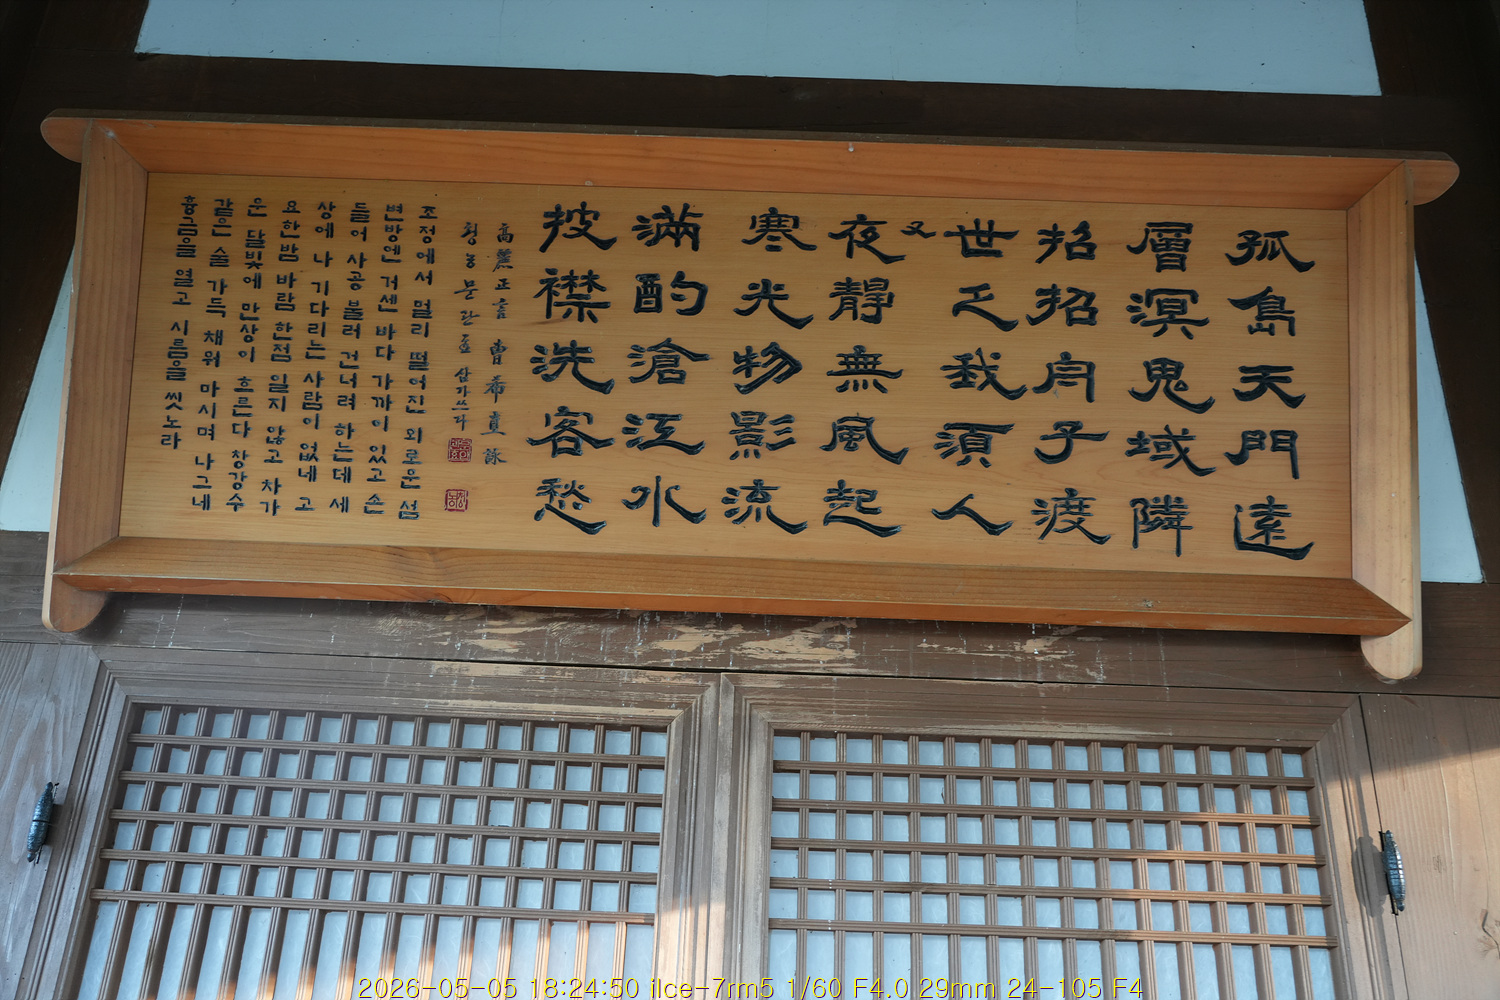 孤島天門遠
層溟鬼域隣
招招舟子渡
世乏我須人
又
夜靜無風起
寒光物影流
滿酌滄江水
披襟洗客愁
高麗正言曹希直詠
청농 문관효 삼가쓰다
조정에서 멀리 떨어진 외로운 섬
변방엔 거센 바다 가까이 있고 손
들어 사공 불러 건너려 하는데 세
상에 나 기다리는 사람이 없네 고
요한밤 바람 한점 일지 않고 차가
운 달빛에 만상이 흐른다 창강수
같은 술 가득 채워 마시며 나그네
흉금을 열고 시름을 씻노라
2026-05-05 18:24:50 ilce-7rm5 1/60 F4.0 29mm 24-105 F4